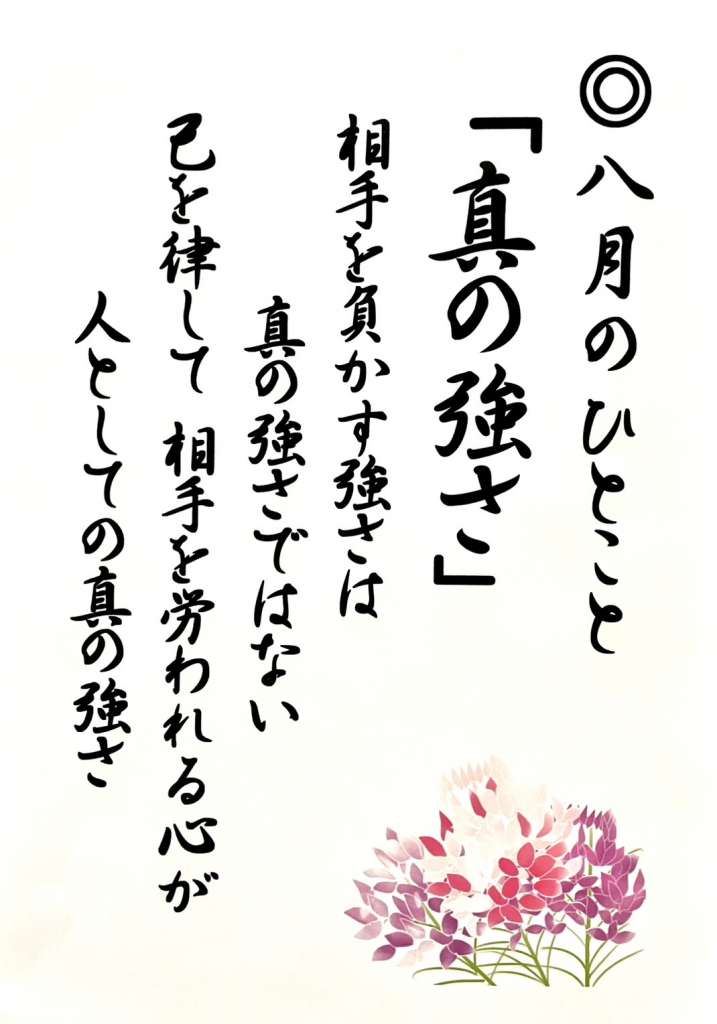 ◎八月のひとこと
「真の強さ」
相手を負かす強さは
真の強さではない
己を律して 相手を労われる心が
人としての真の強さ